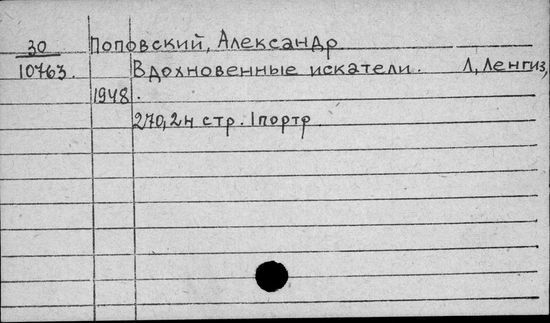 30 Поповский, Александр
10763. Вдохновенные искатели. Л, Ленгиз,
1948.
270, 2н стр. 1 портр